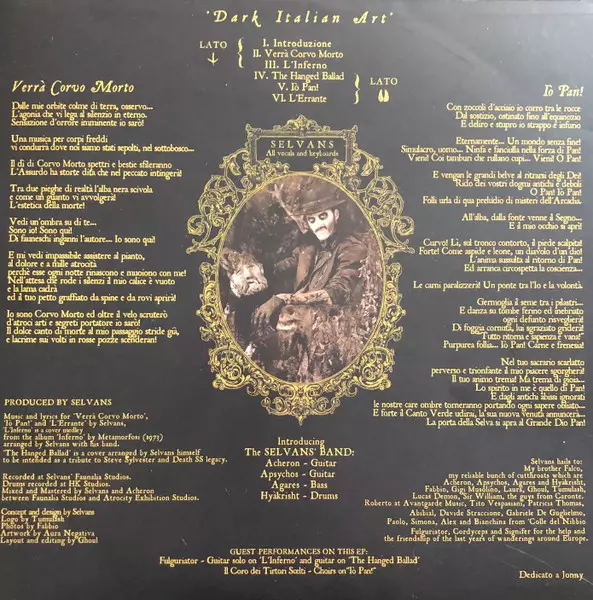 'Dark Italian Art'
LATO
I. Introduzione
II. Verrà Corvo Morto
III. L'Inferno
IV. The Hanged Ballad
V. Iò Pan!
VI. L'Errante
LATO
Verrà Corvo Morto
Dalle mie orbite colme di terra, osservo...
L'agonia che vi lega al silenzio in eterno.
Sensazione d'orrore imminente io sarò!
Una musica per corpi freddi
vi condurrà dove noi siamo stati sepolti, nel sottobosco...
Il dì di Corvo Morto spettri e bestie sfileranno
L'Assurdo ha storte dita che nel peccato intingerà!
Tra due pieghe di realtà l'alba nera scivola
e come un guanto vi avvolgerà!
L'estetica della morte!
Vedi un'ombra su di te...
Sono io! Sono qui!
Di fauneschi inganni l'autore... Io sono qui!
E mi vedi impassibile assistere al pianto,
al dolore e a mille atrocità
perchè esse ogni notte rinascono e muoiono con me!
Nell'attesa che rode i silenzi il mio calice è vuoto
e la lama cadrà
ed il tuo petto graffiato da spine e da rovi aprirà!
Io sono Corvo Morto ed oltre il velo scruterò
d'atroci arti e segreti portatore io sarò!
Il dolce canto di morte al mio passaggio stride già,
e lacrime sui volti in rosse pozze scenderan!
SELVANS
All vocals and keyboards
Iò Pan!
Con zoccoli d'acciaio io corro tra le rocce
Dal sostizio, ostinato fino all'equinozio
E deliro e stupro io strappo e infurio
Eternamente... Un mondo senza fine!
Simulacro, uomo... Ninfa e fanciulla nella forza di Pan!
Vieni! Coi tamburi che rullano cupi... Vieni! O Pan!
E vengan le grandi belve al ritrarsi degli Dei!
Rido dei vostri dogmi antichi e deboli
O Pan! Iò Pan!
Folli urla di qua preludio di misteri dell'Arcadia.
All'alba, dalla fonte venne il Segno...
E il mio occhio si aprì!
Curvo! Lì, sul tronco contorto, il piede scalpita!
Forte! Come aspide e leone, un diavolo d'un dio!
L'anima sussulta al ritorno di Pan!
Ed arranca circospetta la coscienza...
Le carni paralizzerà! Un ponte tra l'Io e la volontà.
Germoglia il seme tra i pilastri...
E danza su tombe fermo ed inebriato
ogni defunto risveglierà!
Di foggia cornuta, lui sgraziato griderà!
"Tutto ritorna e sapienza è vana!"
Purpurea follia... Iò Pan! Carne e frenesia!
Nel tuo sacrario scarlatto
perverso e trionfante il mio piacere sgorgherà!
Il tuo animo trema! Ma trema di gioia...
Lo spirito in me è quello di Pan!
E dagli antichi abissi ignorati
le nostre care ombre torneranno portando ogni sapere obliato...
E forte il Canto Verde udirai, la sua nuova venuta annuncerà...
La porta della Selva si aprì al Grande Dio Pan!
PRODUCED BY SELVANS
Music and lyrics for 'Verrà Corvo Morto',
'Iò Pan!' and 'L'Errante' by Selvans,
'L'Inferno' is a cover medley
from the album 'Inferno' by Metamorfosi (1973)
arranged by Selvans with his band.
'The Hanged Ballad' is a cover arranged by Selvans himself
to be intended as a tribute to Steve Sylvester and Death SS legacy.
Recorded at Selvans' Faunalia Studios.
Drums recorded at HK Studios.
Mixed and Mastered by Selvans and Acheron
between Faunalia Studios and Atrocity Exhibition Studios.
Concept and design by Selvans
Logo by Tumulash
Photos by Fabbio
Artwork by Aura Negativa
Layout and editing by Ghoul
Introducing
The SELVANS' BAND:
Acheron - Guitar
Apsychos - Guitar
Agares - Bass
Hyàkrisht - Drums
GUEST PERFORMANCES ON THIS EP:
Fulguriator - Guitar solo on 'L'Inferno' and guitar on 'The Hanged Ballad'
Il Coro dei Tirtori Scelti - Choirs on "Iò Pan!"
Selvans hails to:
My brother Falco,
my reliable bunch of cutthroats which are
Acheron, Apsychos, Agares and Hyàkrisht,
Fabbio, Gipi Musolino, Laura, Ghoul, Tumulash,
Lucas Demon, Sir William, the guys from Caronte.
Roberto at Avantgarde Music, Tito Vespasiani, Patricia Thomas,
Abibial, Davide Straccione, Gabriele De Goglielmo,
Paolo, Simona, Alex and Bianchina from 'Colle del Nibbio
Fulguriator, Cordyceps and Signifer for the help and
the friendship of the last years of wanderings around Europe.
Dedicato a Jonny